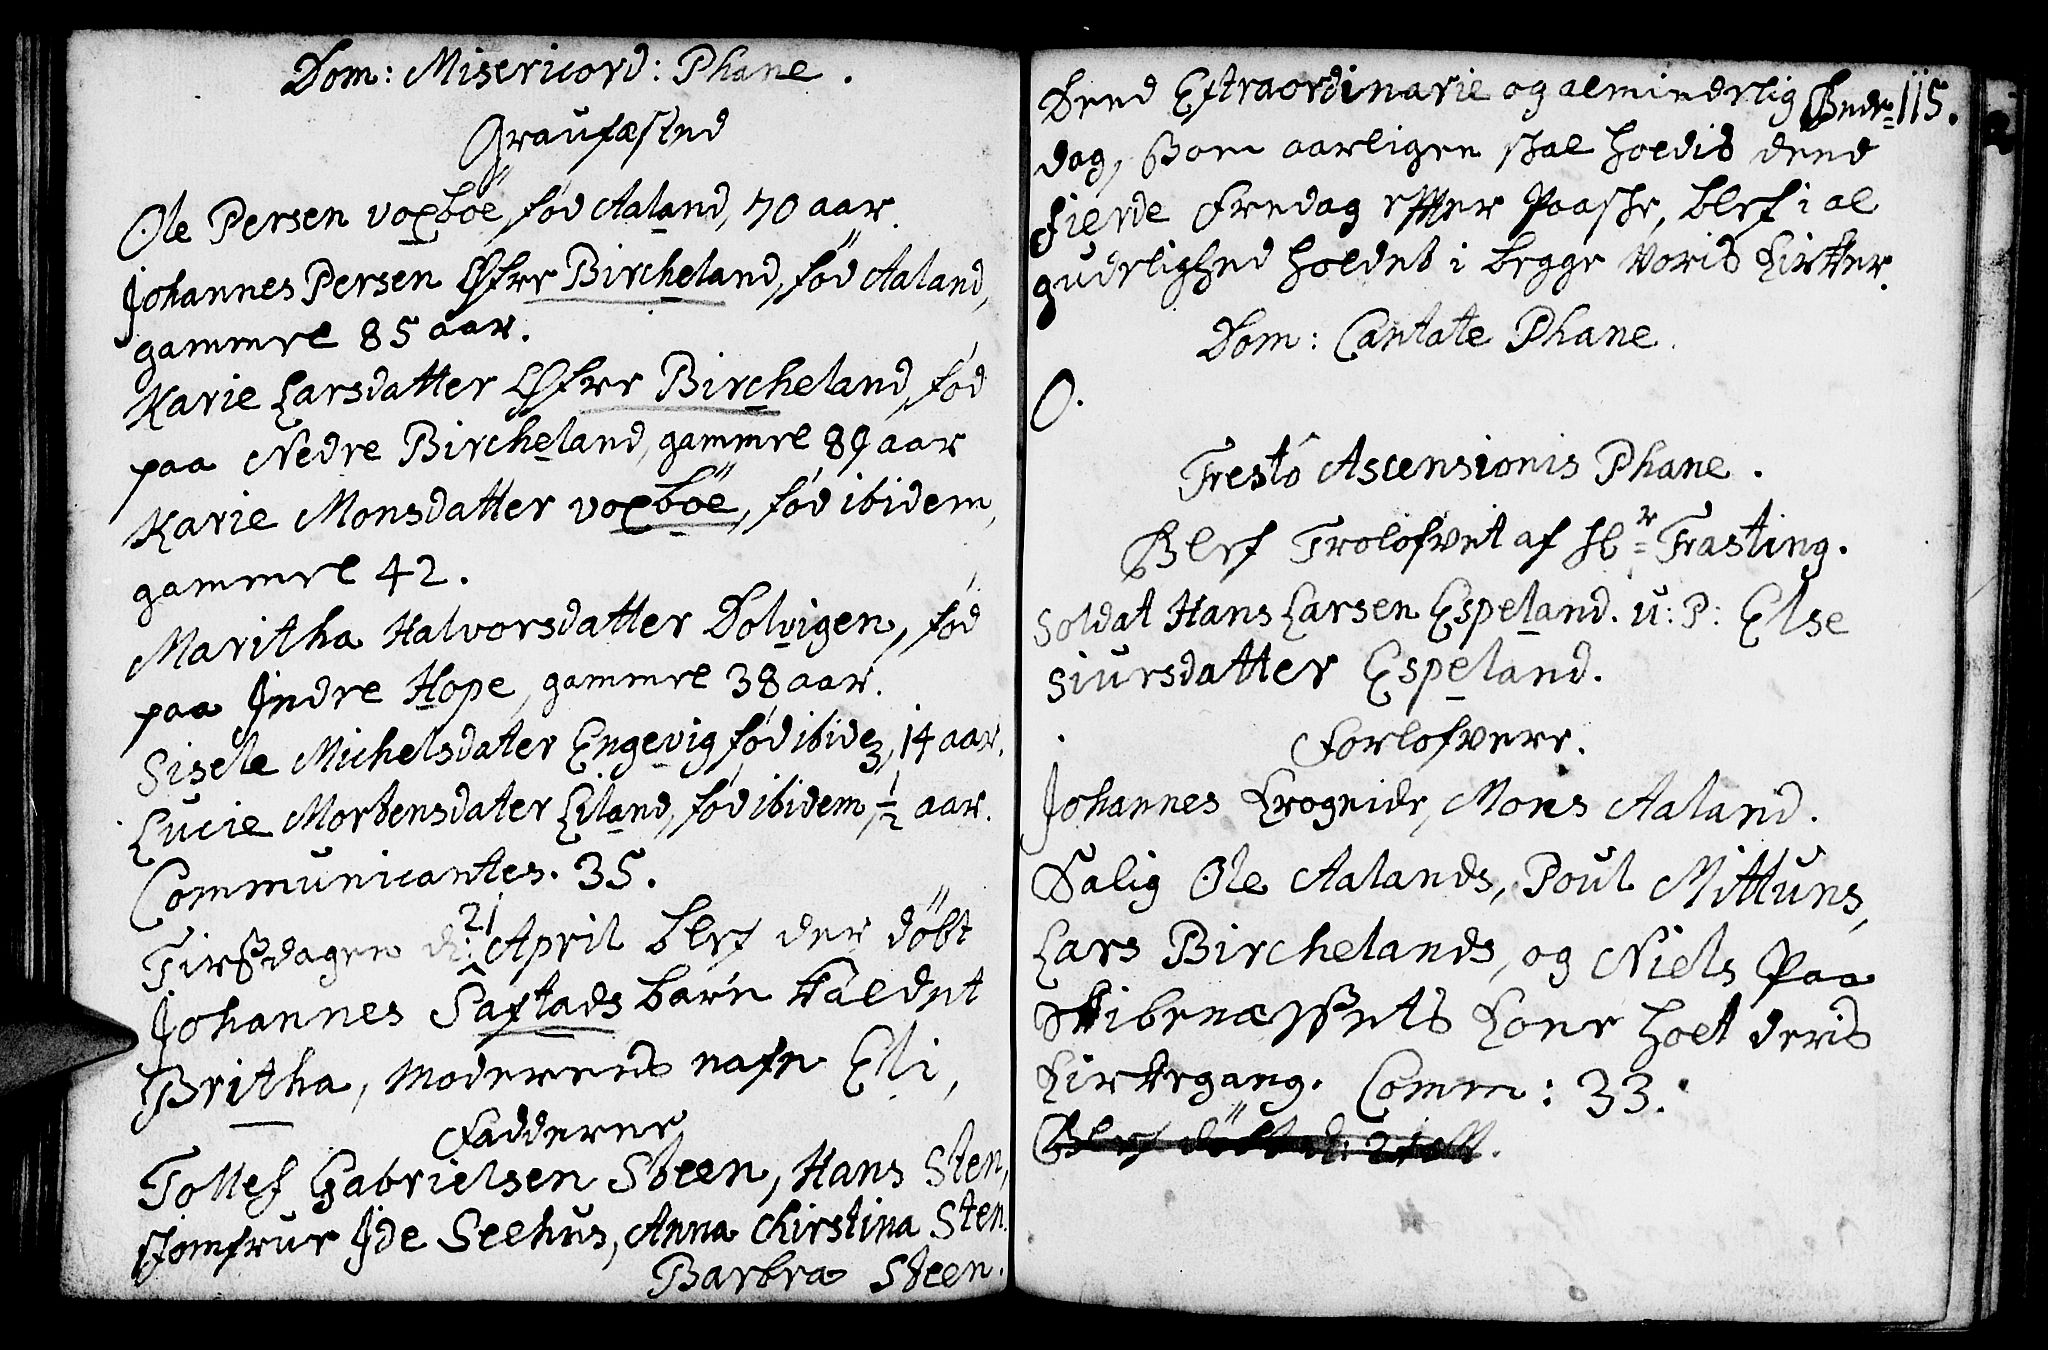 Dom: Misericord: Phane.
Graufæsted
Ole Persen voxböe, fød Aaland, 70 aar.
Johannes Persen Øfre Bircheland, fød Aaland,
gammel 85 aar.
Karie Larsdatter Øfre Bircheland, fød
paa Nedre Bircheland, gammel 89 aar
Karie Monsdatter voxböe, fød ibidem,
gammel 42.
Maritha Halvorsdatter Dolvigen, fød
paa Indre Hope, gammel 38 aar.
Sisele Michelsdater Engevig fød ibidem, 14 aar.
Lucie Mortensdater Liland, fød ibidem, ½ aar.
Communicantes. 35.
Tirsdagen d: 21 April blef der döbt
Johannes Saftads barn kaldet
Britha, Moderens nafn Eli,
Faddere
Tollef Gabrielsen Steen, Hans Sten,
Jomfrue Ide Seehus, Anna Chirstina Sten
Barbra Steen.
115.
Dend Extraordinarie og almindelig Bede=
dag, som aarligen skal holdis dend
fierde Fredag effter Paaske, blef i al
gudelighed holdet i begge Voris Kirker.
Dom: Cantate Phane.
O.
Festô Ascensionis Phane.
Blef Trolofvet af Hr= Frasting.
Soldat Hans Larsen Espeland. u: P: Else
Siursdatter Espeland.
Forlofvere.
Johannes Krogeide, Mons Aaland.
Salig Ole Aalands, Poul Mittuns,
Lars Birchelands, og Niels Paa
Skibenæssets Kone holt deris
Kirkegang. Comm: 33.
Blef döbt d: 21